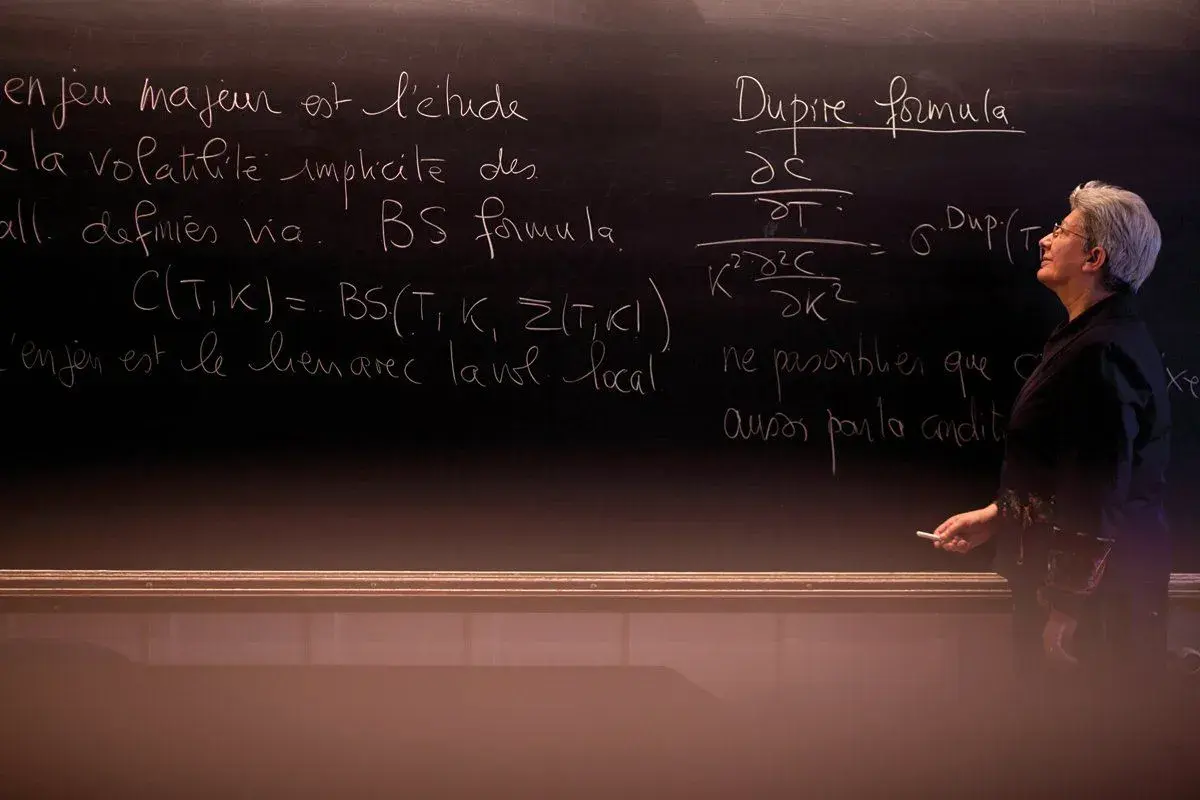 enjeu majeur est l'étude
la volatilité implicite des
all. definies via. BS formula.
C(T, K) = BS(T, K, Σ(T, K))
'enjeu est le lien avec la vol. local
Dupire formula
∂C
∂T
K² ∂²C
∂K²
= σ Dup. (T
ne pas oublier que C
aussi par la condit